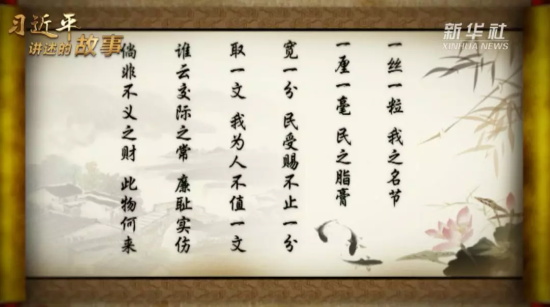 习近平
讲述的故事
新华社
XINHUA NEWS
一丝一粒 我之名节
一厘一毫 民之脂膏
宽一分 民受赐不止一分
取一文 我为人不值一文
谁云交际之常 廉耻实伤
倘非不义之财 此物何来